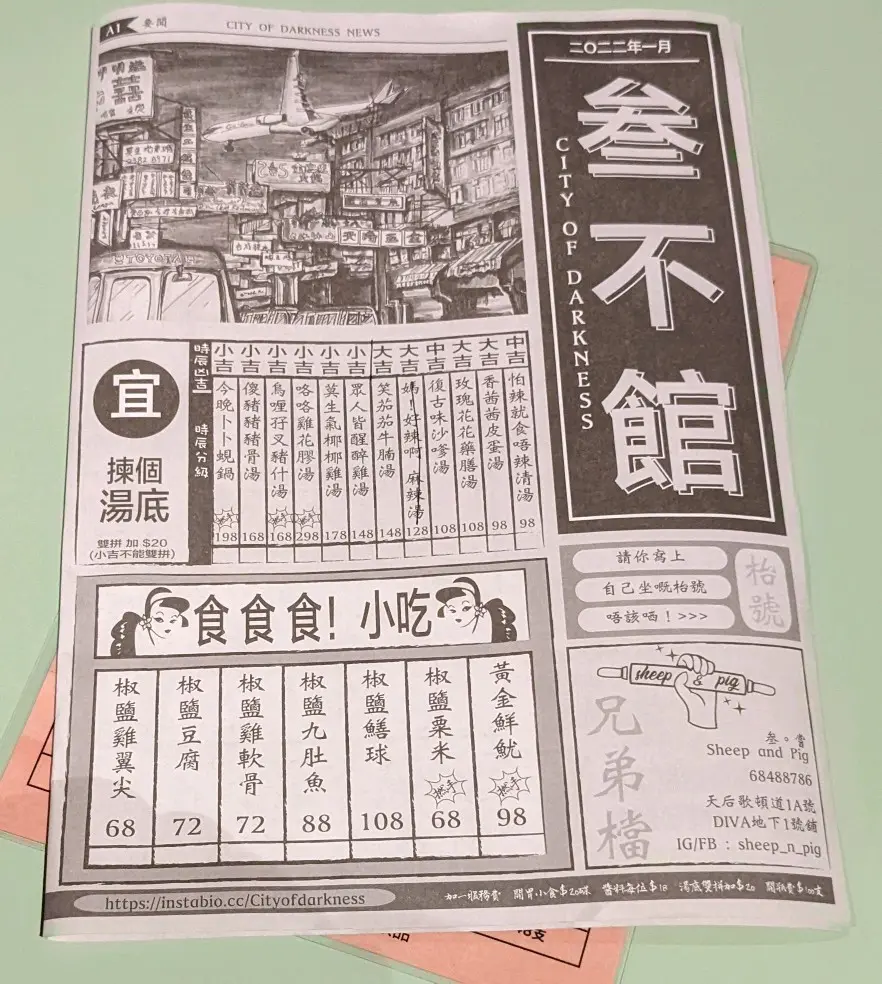 A1 要聞
CITY OF DARKNESS NEWS
二〇二二年一月
叁不館
CITY OF DARKNESS
TOYOTA
宜
揀個
湯底
雙拼 加 $20
(小吉不能雙拼)
時辰凶吉 時辰分級
中吉 怕辣就食唔辣清湯 98
大吉 香茜茜皮蛋湯 98
大吉 玫瑰花花藥膳湯 108
中吉 復古味沙嗲湯 108
大吉 媽!好辣啊 麻辣湯 128
大吉 笑茄茄牛腩湯 148
小吉 眾人皆醒醉雞湯 148
小吉 莫生氣椰椰雞湯 178
小吉 咯咯雞花膠湯 298
小吉 烏哩孖叉豬什湯 168
小吉 傻豬豬豬骨湯 168
小吉 今晚卜卜蜆鍋 198
請你寫上
自己坐嘅枱號
唔該哂!>>>
枱號
食食食! 小吃
黃金鮮魷 98
椒鹽粟米 68
椒鹽鱔球 108
椒鹽九肚魚 88
椒鹽雞軟骨 72
椒鹽豆腐 72
椒鹽雞翼尖 68
sheep & pig
兄弟檔
叁。嘗
Sheep and Pig
68488786
天后歌頓道1A號
DIVA地下1號鋪
IG/FB : sheep_n_pig
https://instabio.cc/Cityofdarkness
加一服務費 開胃小食$20碟 醬料每位$18 湯底雙拼加$20 開瓶費$100支